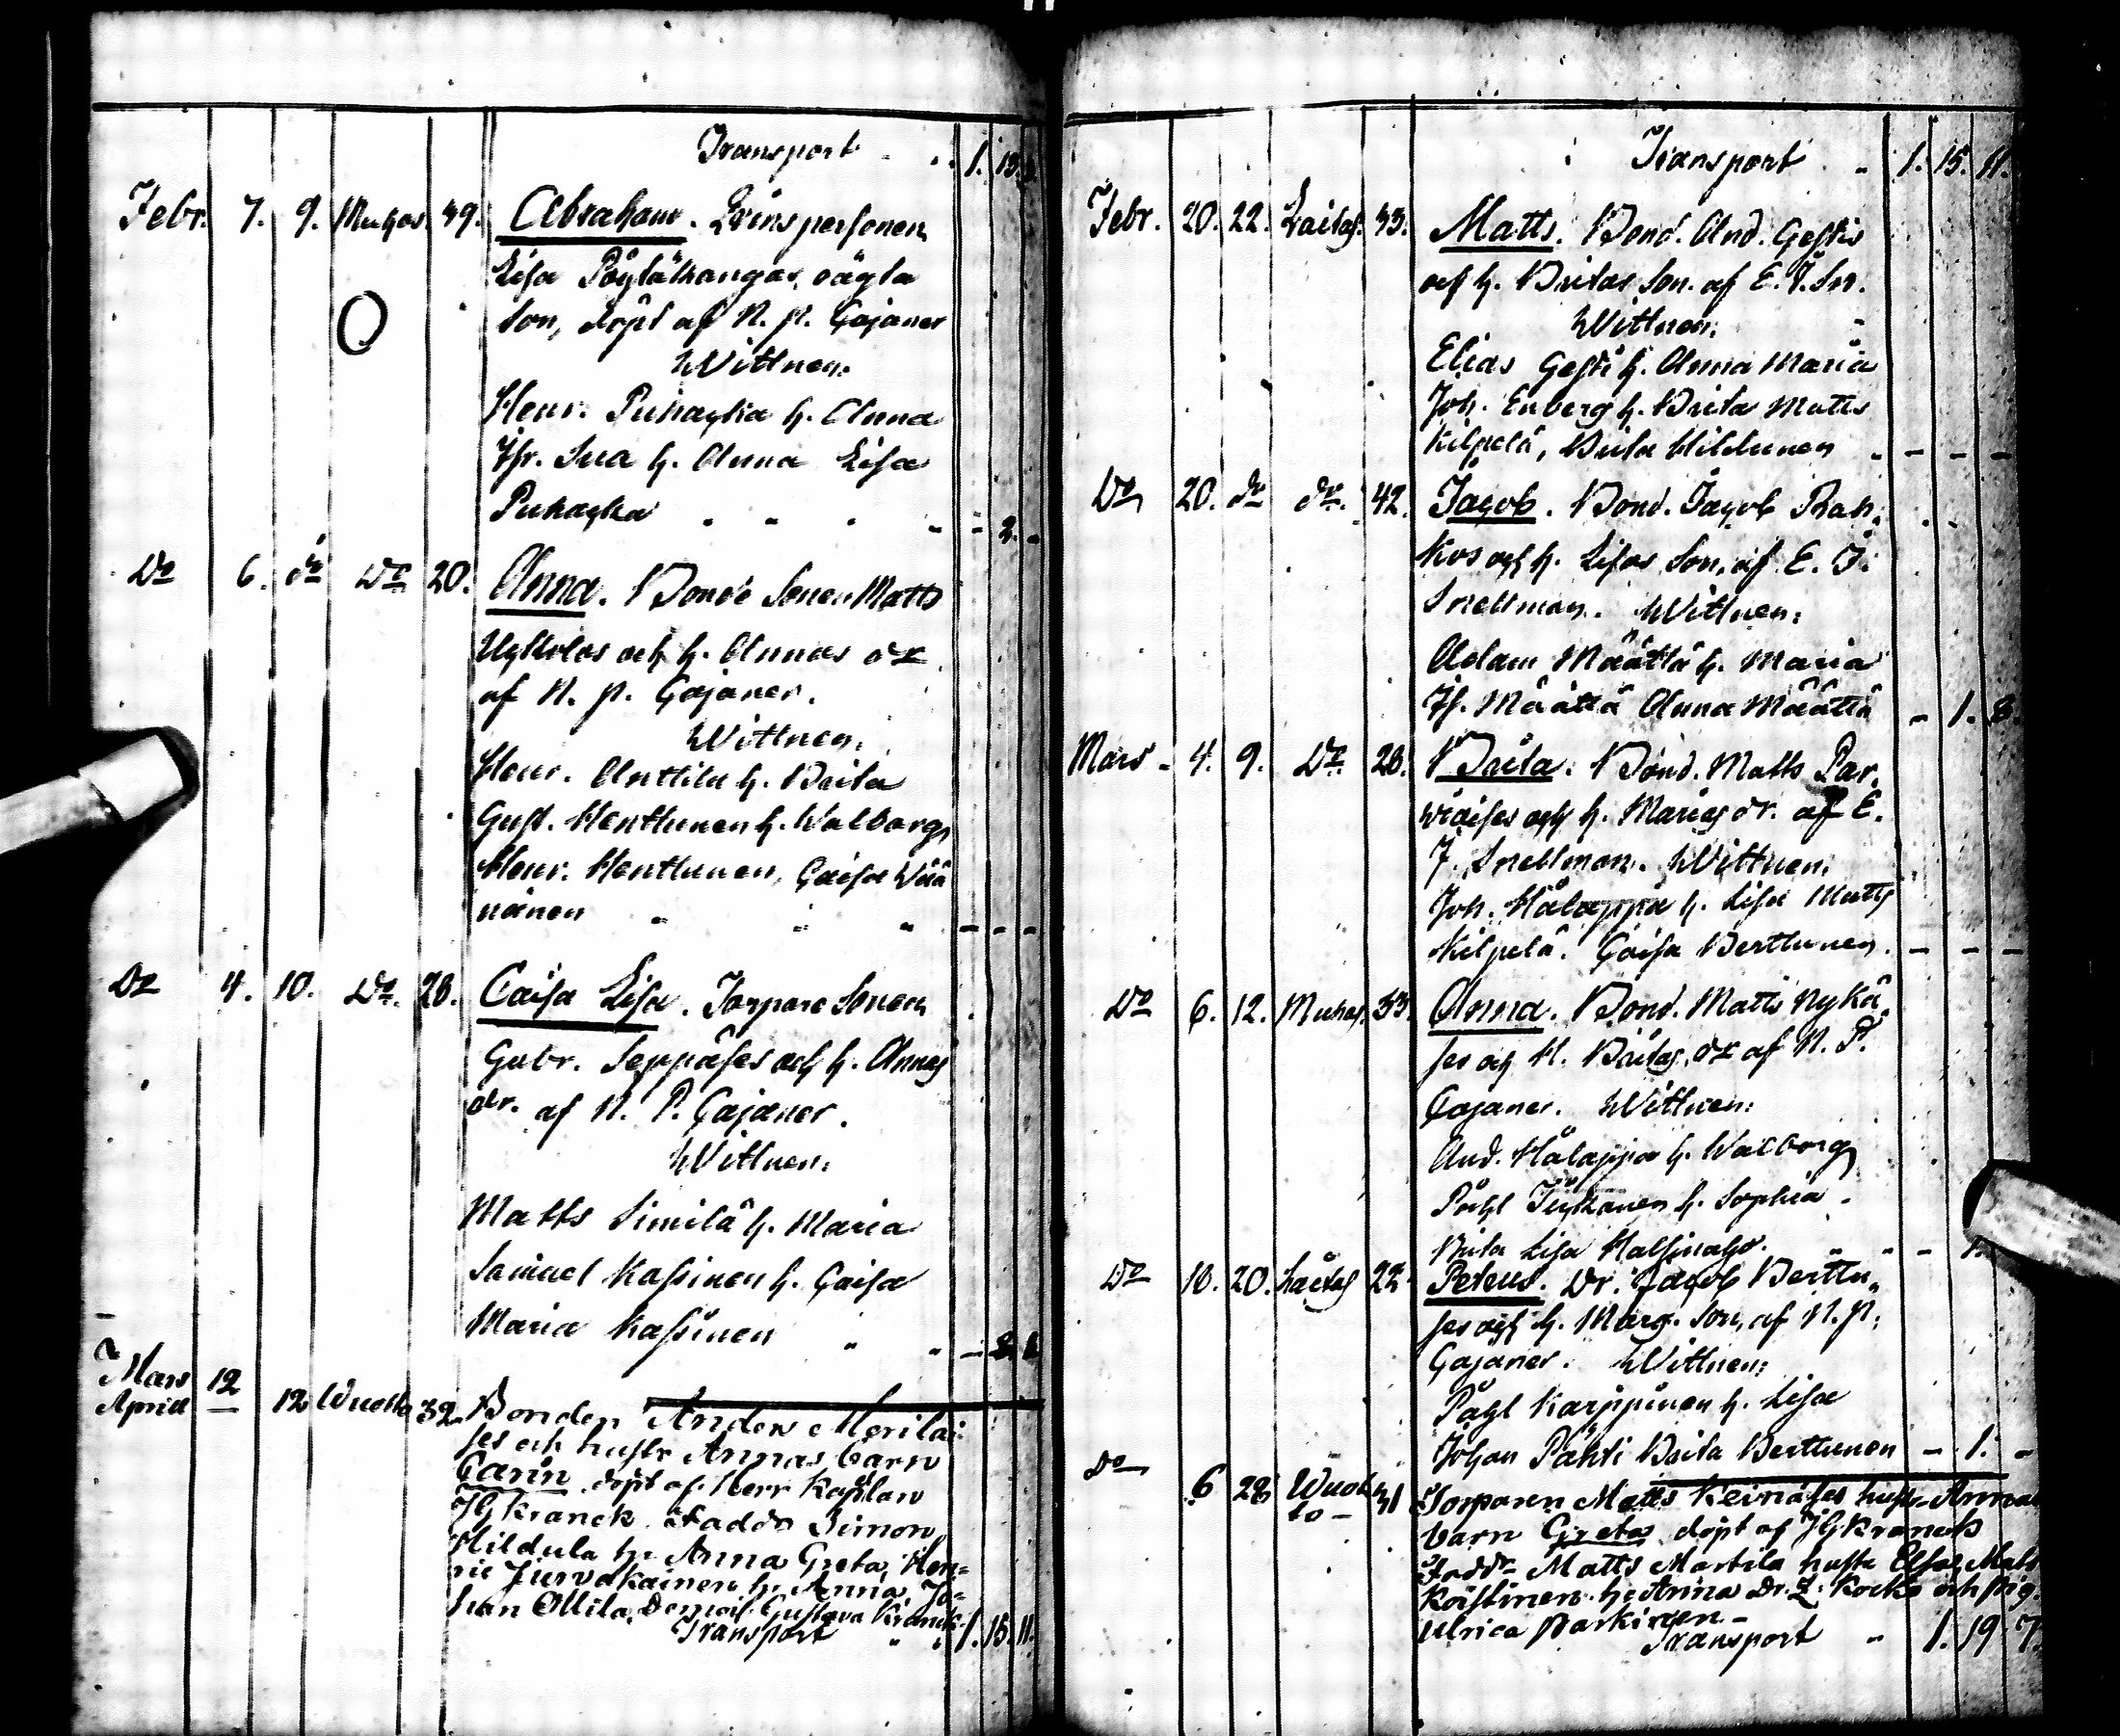 Transport 1. 13.
Febr. 7. 9. Muhos. 39. Abraham. Qvinspersonen
Lisa Pöytäkangas oägta
Son, döpt af N. P. Cajaner
Wittnen:
Henr. Puhakka h. Anna
h. Anna Lisa
Puhakka - 2. -
Do 6. do Do 20. Anna. Bonde Sonen Matts
och h. Annas dr
af N. P. Cajaner.
Wittnen:
Henr. Anttila h. Brita
Gust. Henttunen h. Walborg
Henr. Henttunen, Caisa Wää
nänen - - -
Do 4. 10. Do. 28. Caisa Lisa. Torpare Sonen
Gabr. Seppäses och h. Annas
dr. af N. P. Cajaner.
Wittnen:
Matts Similä h. Maria
Samuel Kassinen h. Caisa
Maria Kassinen
Mars 12
April — 12 Wuotto 32 Bonden Anders Meriläi-
ses och hustr Annas barn
Carin döpt af Herr Kaplan
JG Kranck. Faddr Simon
Hildula h. Anna Greta, Hen=
ric Jurvakainen h. Anna, Jo=
han Ollila, Demois. Gustava Kranck.
Transport 1. 15. 11.
Transport 1. 15. 11.
Febr. 20. 22. Laitas. 33. Matts. Bond. And. Gestis
och h. Britas Son. af E. J. Sn.
Wittnen:
Elias Gesti h. Anna Maria
Joh. Enberg h. Brita Matts
Kilpelä, Brita Hiltunen - - - -
Do 20. do do. 42. Jacob. Bond. Jacob Rah-
kos och h. Lisas Son, af E. J.
Snellman. Wittnen:
Adam Määttä h. Maria
Määttä Anna Määttä - 1. 8.
Mars - 4. 9. Do. 28. Brita. Bond. Matts Par-
wiaises och h. Marias dr. af E.
J. Snellman. Wittnen:
Joh. Hålappa h. Lisa Matts
Kilpelä. Caisa Berttunen. - - -
Do 6. 12. Muhos. 33. Anna. Bond. Matts Nykä-
ses och H. Britas, dr af N. P.
Cajaner. Wittnen:
And. Hålappa h. Walborg
Påhl Tyykänen h. Sophia
Brita Lisa
Do 18. 20. Laitas 22 Petrus. Dr. Jacob Berttu-
ses och h. Marg. Son, af N. P.
Cajaner. Wittnen:
Påhl Karppinen h. Lisa
Johan Pahti Brita Berttunen - 1. -
Do 6 28 Wuot 31 Torparen Matts Keinäses hustr Annas
to - barn Gretas döpt af JG Kranck
Faddr Matts Martila hustr Elsa, Matts
h. Anna Dr. Z. Kocko och pig.
Ulrica Parkinen -
Transport 1. 19 7.